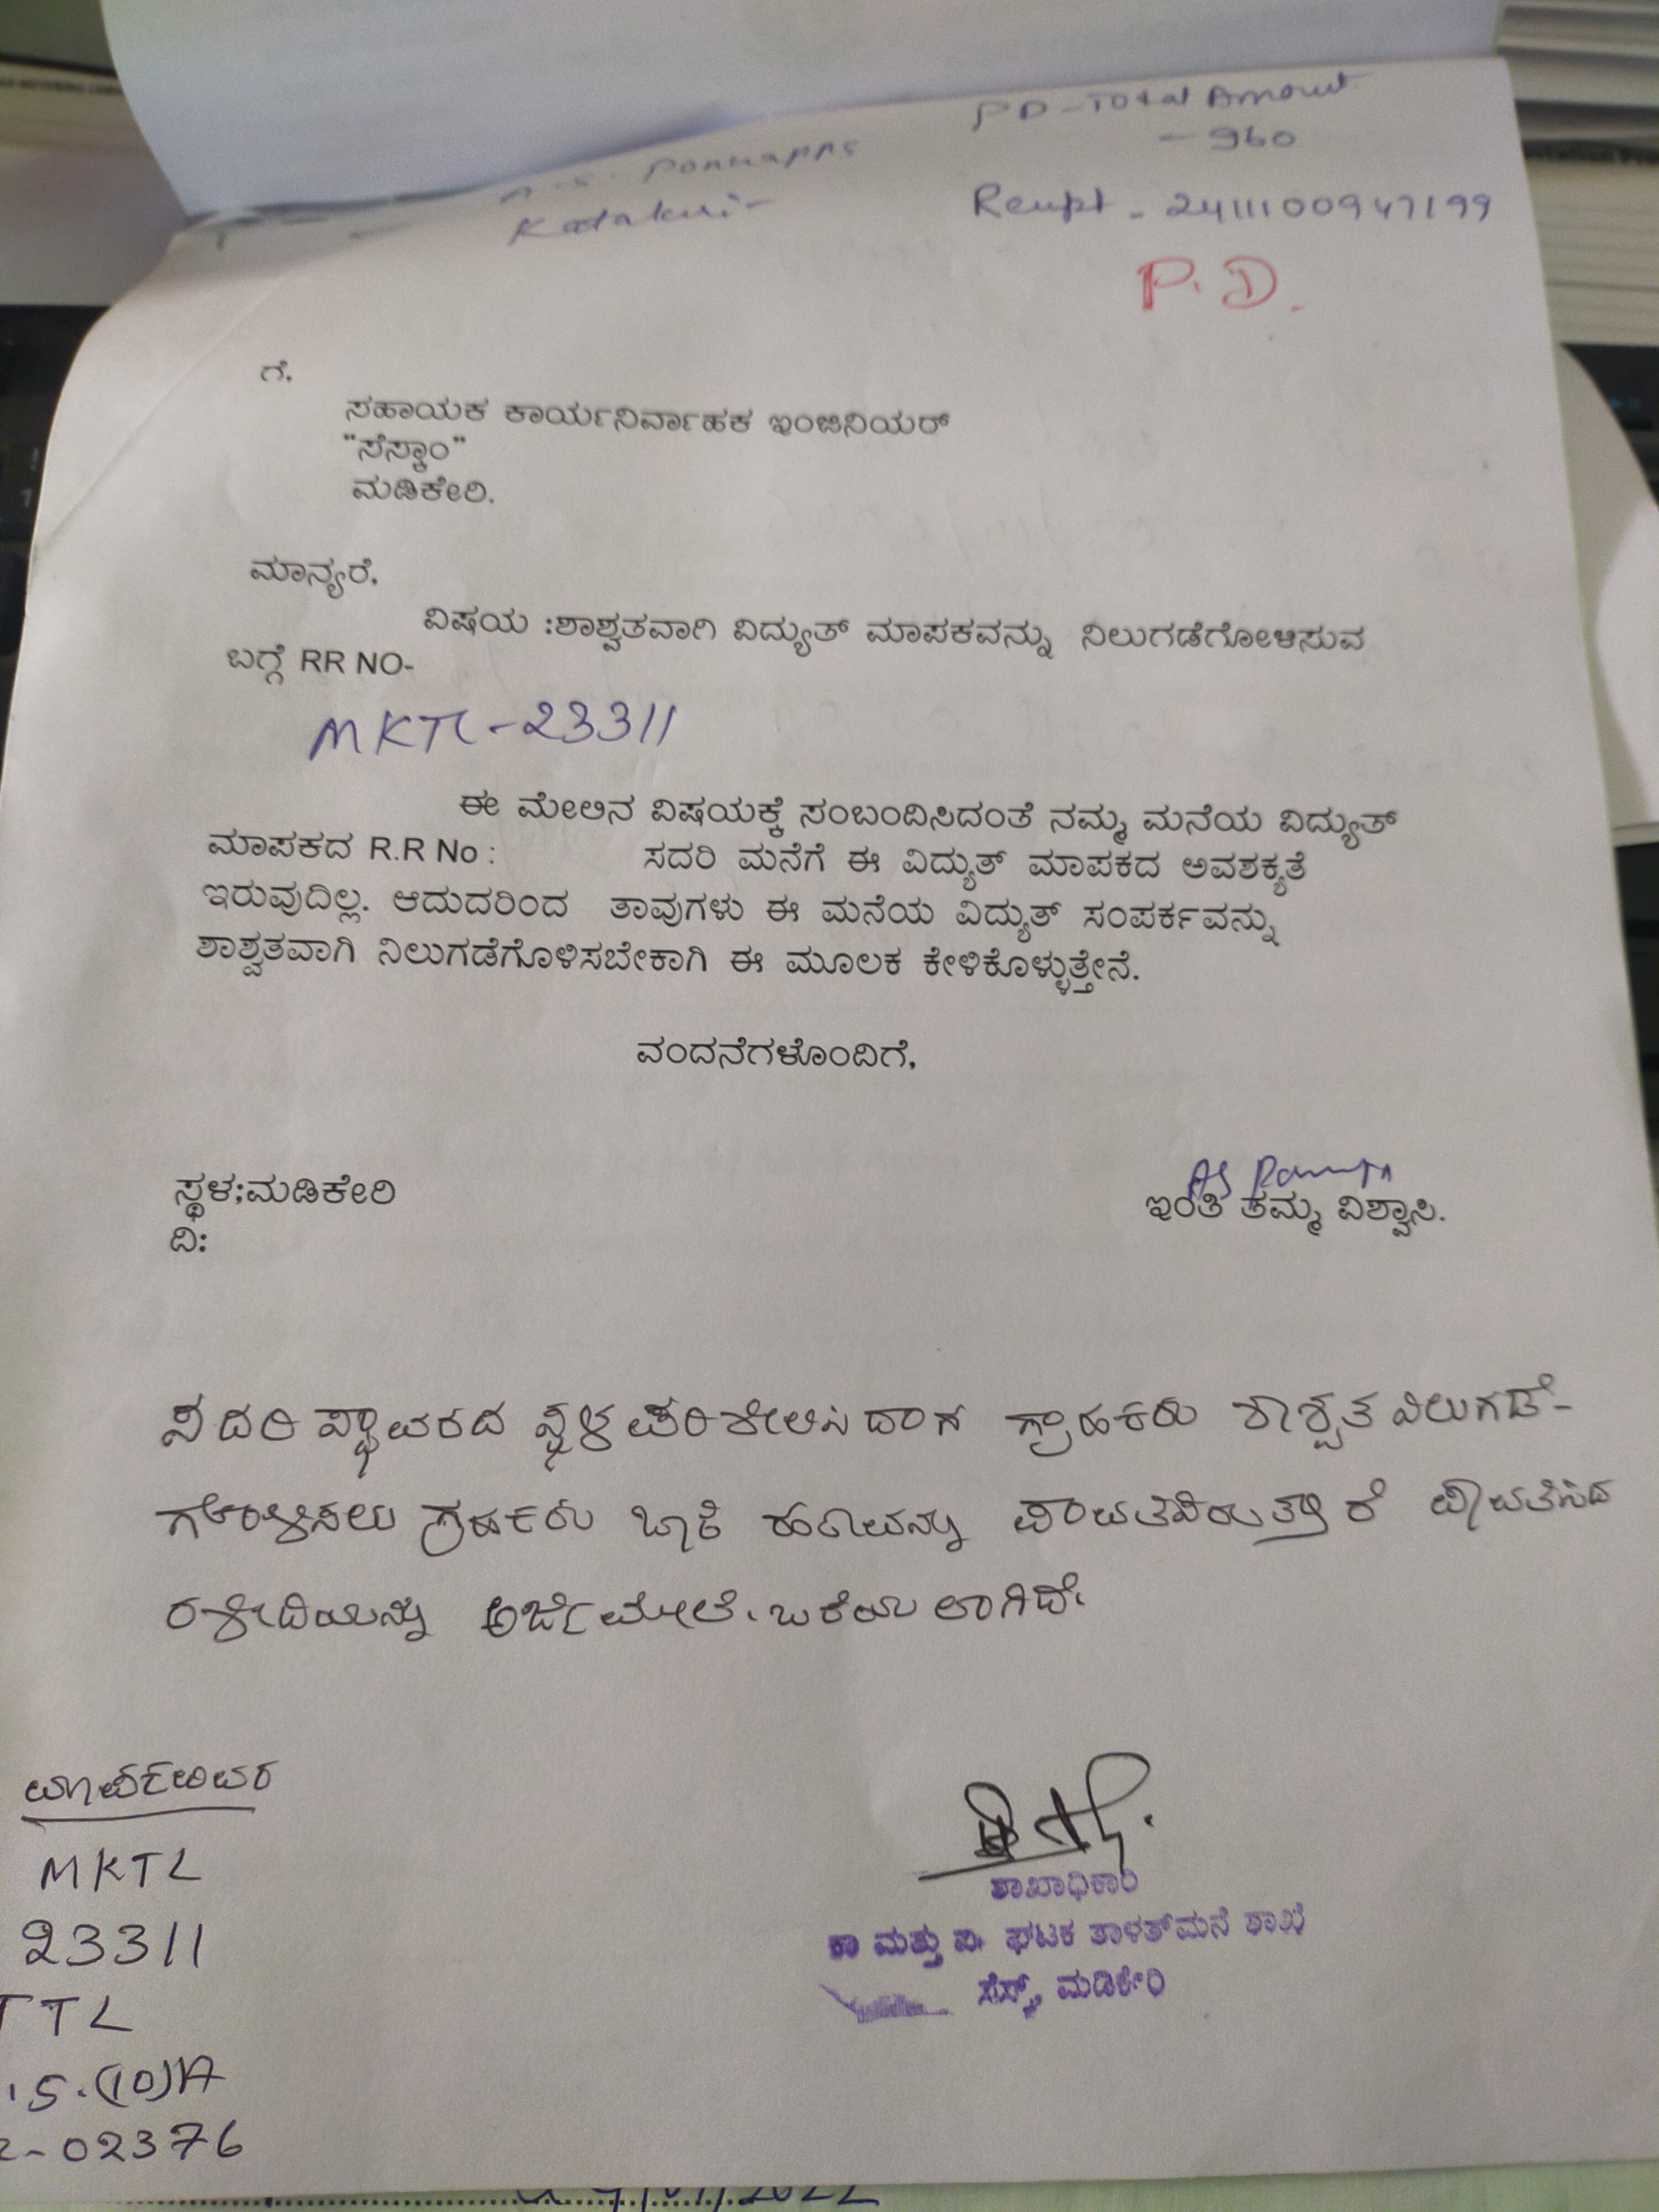 PD - Total Amount
Ponnappa
- 960
Katakeri -
Receipt - 2411100947199
P.D.
ಗೆ.
ಸಹಾಯಕ ಕಾರ್ಯನಿರ್ವಾಹಕ ಇಂಜಿನಿಯರ್
"ಸೆಸ್ಕಾಂ"
ಮಡಿಕೇರಿ.
ಮಾನ್ಯರೆ,
ವಿಷಯ :ಶಾಶ್ವತವಾಗಿ ವಿದ್ಯುತ್ ಮಾಪಕವನ್ನು ನಿಲುಗಡೆಗೋಳಿಸುವ
ಬಗ್ಗೆ RR NO-
MKTL-23311
ಈ ಮೇಲಿನ ವಿಷಯಕ್ಕೆ ಸಂಬಂದಿಸಿದಂತೆ ನಮ್ಮ ಮನೆಯ ವಿದ್ಯುತ್
ಮಾಪಕದ R.R No : ಸದರಿ ಮನೆಗೆ ಈ ವಿದ್ಯುತ್ ಮಾಪಕದ ಅವಶಕ್ಯತೆ
ಇರುವುದಿಲ್ಲ. ಆದುದರಿಂದ ತಾವುಗಳು ಈ ಮನೆಯ ವಿದ್ಯುತ್ ಸಂಪರ್ಕವನ್ನು
ಶಾಶ್ವತವಾಗಿ ನಿಲುಗಡೆಗೊಳಿಸಬೇಕಾಗಿ ಈ ಮೂಲಕ ಕೇಳಿಕೊಳ್ಳುತ್ತೇನೆ.
ವಂದನೆಗಳೊಂದಿಗೆ,
ಸ್ಥಳ;ಮಡಿಕೇರಿ
ಇಂತಿ ತಮ್ಮ ವಿಶ್ವಾಸಿ.
ದಿ:
ಸದರಿ ಸ್ಥಾವರದ ಸ್ಥಳ ಪರಿಶೀಲಿಸಿದಾಗ ಗ್ರಾಹಕರು ಶಾಶ್ವತ ನಿಲುಗಡೆ-
ಗೊಳಿಸಲು ಗ್ರಾಹಕರು ಬಾಕಿ ಹಣವನ್ನು ಪಾವತಿಸಿರುತ್ತಾರೆ ಪಾವತಿಸಿದ
ರಶೀದಿಯನ್ನು ಅರ್ಜಿ ಮೇಲೆ. ಬರೆಯಲಾಗಿದೆ.
MKTL
23311
TTL
5.(10)A
-02376
ಶಾಖಾಧಿಕಾರಿ
ಕಾ ಮತ್ತು ಪಾ ಘಟಕ ತಾಳತ್‌ಮನೆ ಶಾಖೆ
ಸೆಸ್ಕ್, ಮಡಿಕೇರಿ